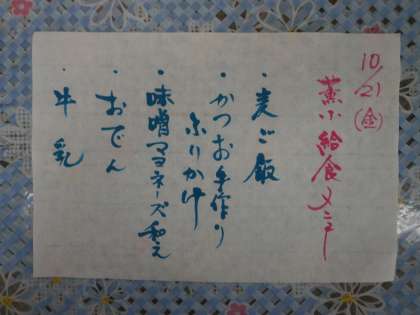 10/21(金)
薫小給食メニュー
・麦ご飯
・かつお手作り
ふりかけ
・味噌マヨネーズ和え
・おでん
・牛乳